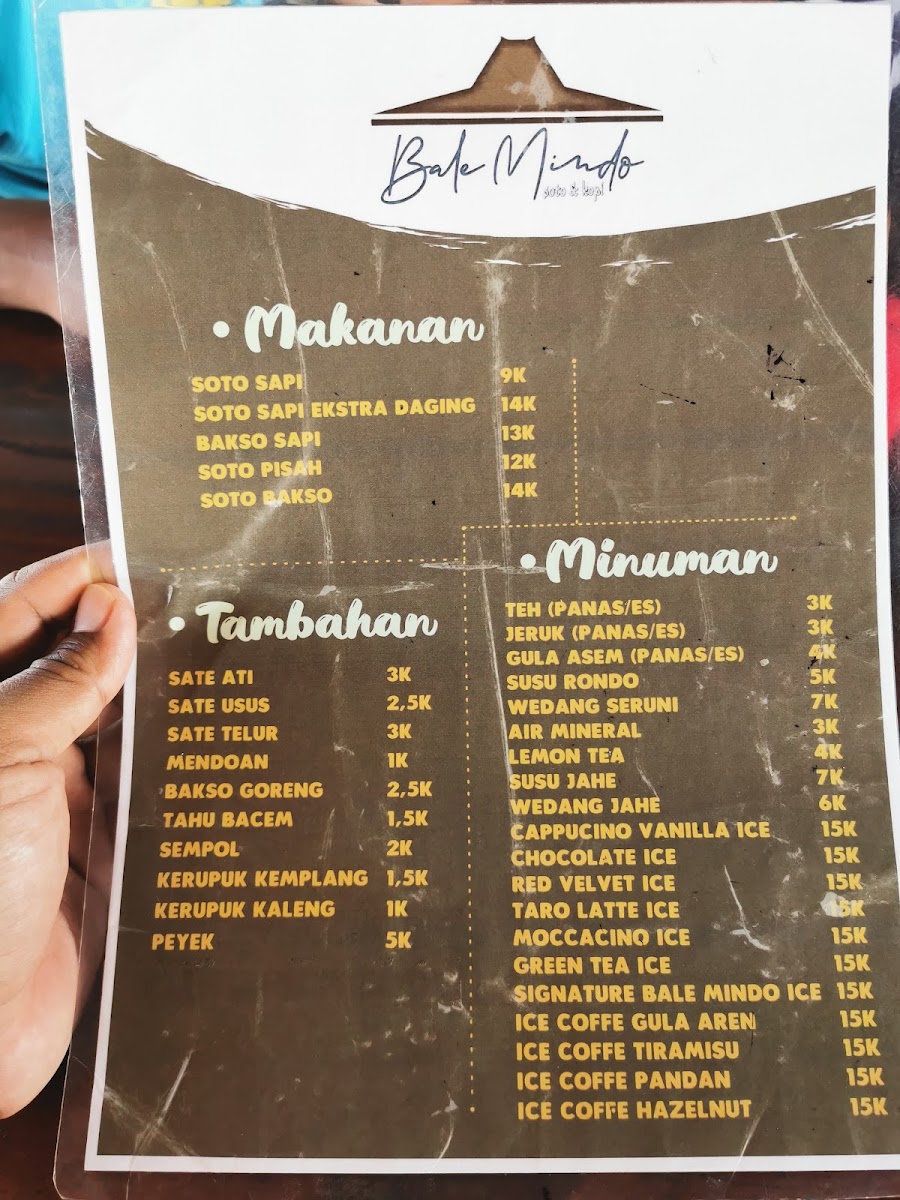 Bale Mindo
soto & kopi
• Makanan
SOTO SAPI 9K
SOTO SAPI EKSTRA DAGING 14K
BAKSO SAPI 13K
SOTO PISAH 12K
SOTO BAKSO 14K
• Tambahan
SATE ATI 3K
SATE USUS 2,5K
SATE TELUR 3K
MENDOAN 1K
BAKSO GORENG 2,5K
TAHU BACEM 1,5K
SEMPOL 2K
KERUPUK KEMPLANG 1,5K
KERUPUK KALENG 1K
PEYEK 5K
• Minuman
TEH (PANAS/ES) 3K
JERUK (PANAS/ES) 3K
GULA ASEM (PANAS/ES) 4K
SUSU RONDO 5K
WEDANG SERUNI 7K
AIR MINERAL 3K
LEMON TEA 4K
SUSU JAHE 7K
WEDANG JAHE 6K
CAPPUCINO VANILLA ICE 15K
CHOCOLATE ICE 15K
RED VELVET ICE 15K
TARO LATTE ICE 15K
MOCCACINO ICE 15K
GREEN TEA ICE 15K
SIGNATURE BALE MINDO ICE 15K
ICE COFFE GULA AREN 15K
ICE COFFE TIRAMISU 15K
ICE COFFE PANDAN 15K
ICE COFFE HAZELNUT 15K